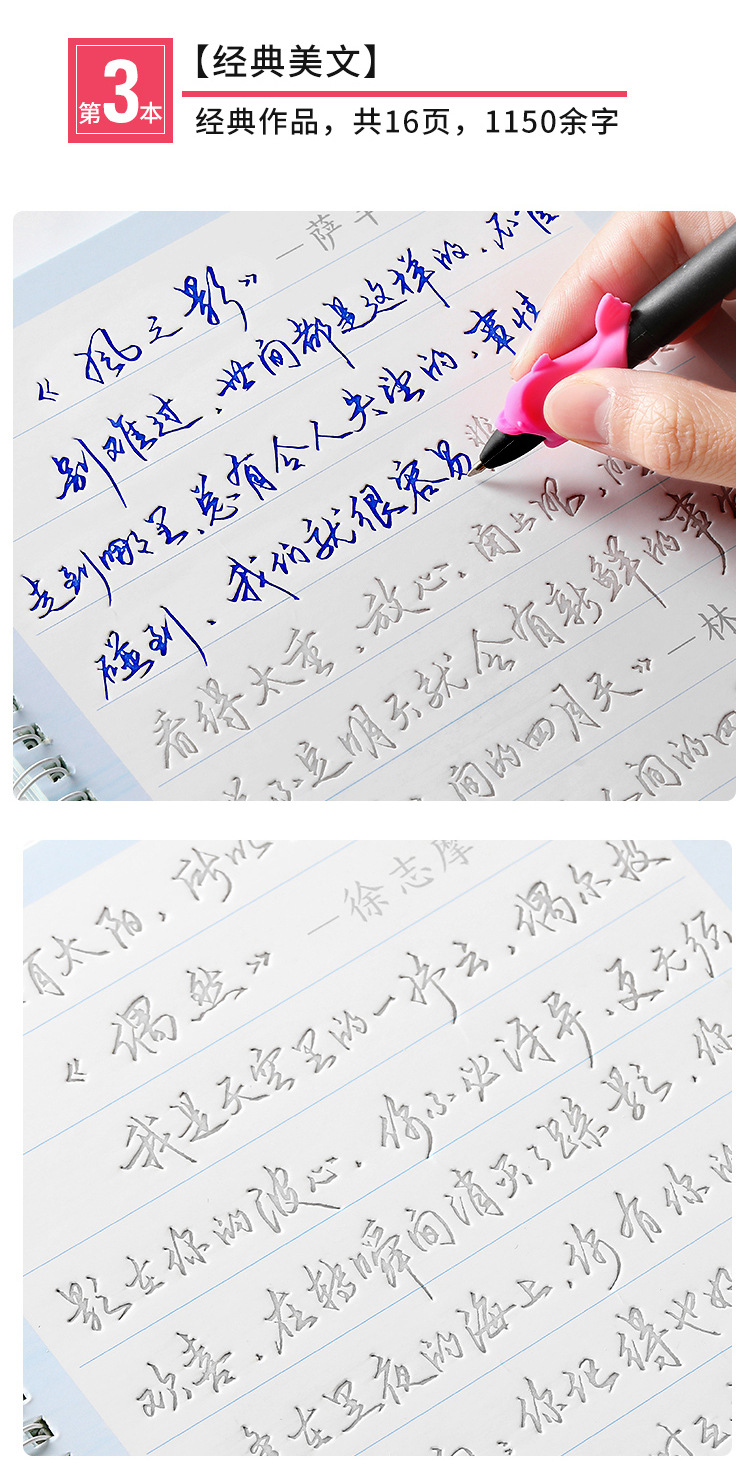 第3本
【经典美文】
经典作品，共16页，1150余字
《风之影》
—萨
别难过，世间都是这样的，不管
走到哪里，总有令人失望的，事情
碰到，我们就很容易
看得太重，放心，闭上眼，
定明天就会有新鲜的事
—林
间的四月天》
人间的四
有太阳，所以
—徐志摩
《偶然》
我是天空里的一片云，偶尔投
影在你的波心，你不必讶异，更无须
欢喜，在转瞬间消灭了踪影，你
在黑夜的海上，你有你的
你记得也好